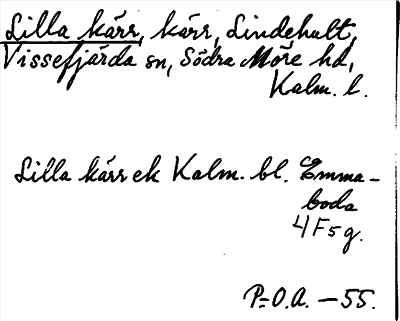 Lilla kärr, kärr, Lindehult,
Vissefjärda sn, Södra Möre hd,
Kalm. l.
Lilla kärr ek Kalm. bl. Emma-
boda
4F5g.
P-O.A. - 55.